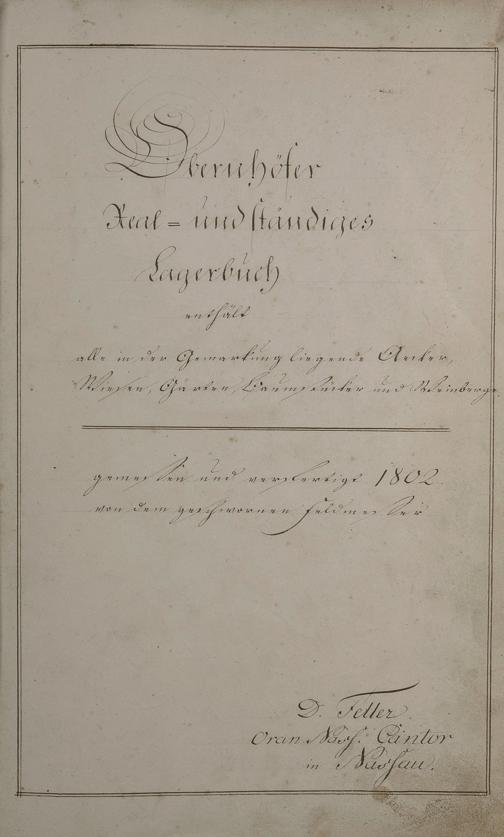 Obernhöfer
Real = und ständiges
Lagerbuch
enthält
alle in der Gemarkung liegende Aecker,
Wiesen, Gärten, Baumstücker und Weinberge
gemessen und verfertigt 1802
von dem geschwornen Feldmesser
D. Feller
Oran. Nass. Cantor
in Nassau.